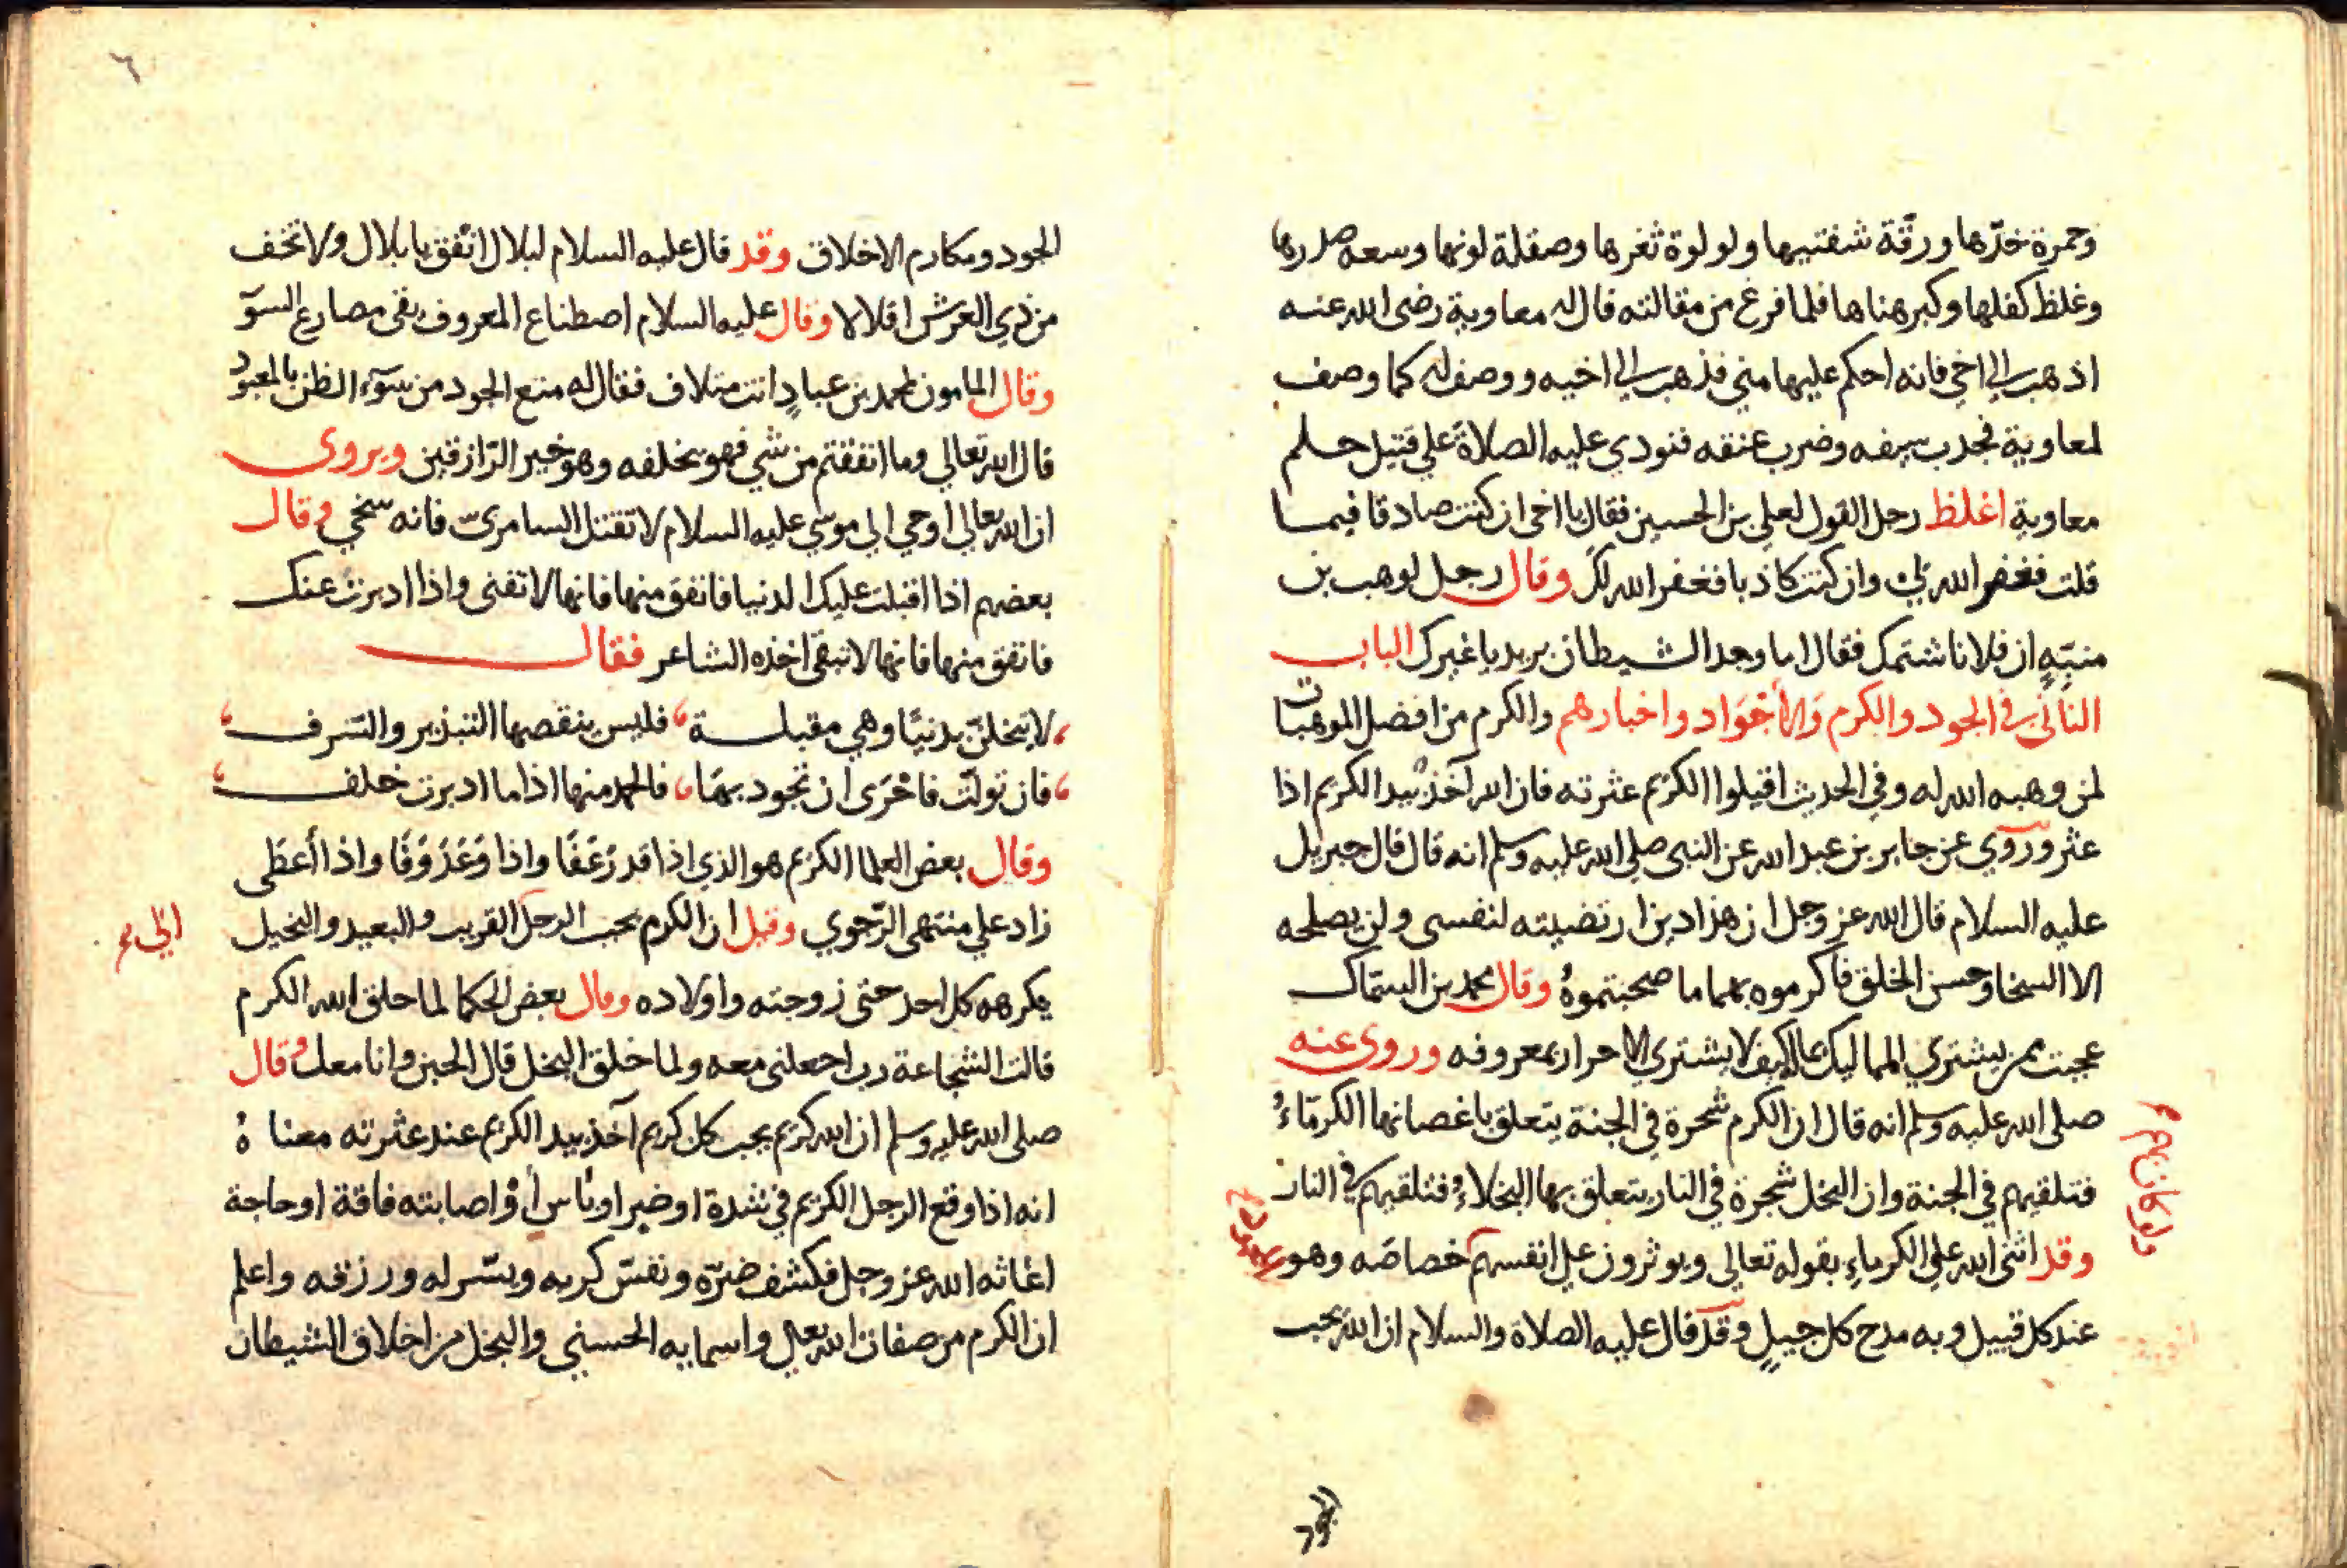 وحمرة خدّها ورقّة شفتيها ولولوة ثغرها وصقلة لونها وسعه صدرها
وغلظ كفلها وكبر هناها فلما فرغ من مقالته قال له معاوية رضى الله عنه
اذهب الي اخي فانه احكم عليها مني فذهب الي اخيه ووصف له كما وصف
لمعاوية فجدب سيفه وضرب عنقه فنودي عليه الصلاة علي قتيل حلم
معاوية اغلظ رجل القول لعلي بن الحسين فقال يا اخى ان كنت صادقا فيما
قلت فغفر الله لي وان كنت كاذبا فغفر الله لك وقال رجل لوهب بن
منبّهٍ ان فلانا شتمك فقال اما وجد الشيطان بريدا غيرك الباب
الثاني في الجود والكرم والأجْوَاد واخبارهم والكرم من افضل الموهبات
لمن وهبه الله له وفي الحديث اقيلوا الكريم عثرته فان الله آخذ بيد الكريم اذا
عثر وروي عن جابر بن عبد الله عن النبى صلى الله عليه وسلم انه قال قال جبريل
عليه السلام قال الله عز وجل ان هذا دين ارتضيته لنفسى ولن يصلحه
الا السخا وحسن الخلق فاكرموه بهما ما صحبتموهُ وقال محمد بن السمّاك
عجبت لمن يشتري المماليك بماله كيف لا يشتري الاحرار بمعروفه وروى عنه
صلى الله عليه وسلم انه قال ان الكرم شجرة في الجنة يتعلق باغصانها الكرمَاءُ
فتلقيهم في الجنة وان البخل شجرة في النار يتعلق بها البخلاءُ فتلقيهم في النار
وقد اثنى الله علي الكرماءِ بقوله تعالي ويوثرون علي انفسهم خصاصَه وهو
ولو كان بهم
عند كل قبيل وبه مدح كل جيلٍ وقد قال عليه الصلاة والسلام ان الله يحب
الجود
٦
الجود ومكارم الاخلاق وقد قال عليه السلام لبلال انْفق يا بلال ولا تخف
من ذي العرش اقلالا وقال عليه السلام اصطناع المعروف يقى مصارع السوّ
وقال المامون لمحمد بن عبادٍ انت متلاف فقال له منع الجود من سوّء الظن بالمعبود
قال الله تعالي وما انفقتم من شي فهو يخلفه وهو خير الرّازقين ويروى
ان الله تعالي اوحي الي موسي عليه السلام لا تقتل السامريّ فانه سخي وقال
بعضهم اذا اقبلت عليك الدنيا فانفق منها فانها لا تفنى واذا ادبرت عنك
فانفق منها فانها لا تبقي اخذه الشاعر فقال
لا تبخلنّ بدنيّا وهي مقبلة فليس ينقصها التبذير والسّرف
فان تولّت فاحْرَى ان تجود بهَا فالحمد منها اذا ما ادبرت خلف
وقال بعض العلما الكريم هو الذي اذا قدر عَفا واذا وَعَدَ وَفَا واذا أعطَى
زاد علي منتهى الرّجوي وقيل ان الكرم يحبب الرجل القريب والبعيد والبخيل
يكرهه كل احد حتى زوجته واولاده وقال بعض الحكما لما خلق الله الكرم
قالت الشجاعة رب اجعلنى معه ولما خلق البخل قال الجبن وانا معك وقال
صلى الله عليه وسلم ان الله كريم يحب كل كريم آخذ بيد الكريم عند عثرته معناهُ
انه اذا وقع الرجل الكريم في شدة او ضير او بأس أو اصابته فاقة او حاجة
اغاثه الله عز وجل فكشف ضرّه ونفس كربه ويسّر له ورزقه واعلم
ان الكرم من صفات الله تعالي واسمايه الحسني والبخل من اخلاق الشيطان